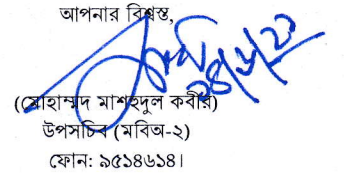 আপনার বিশ্বস্ত,
(মোহাম্মদ মাশহুদুল কবীর)
উপসচিব (মবিঅ-২)
ফোন: ৯৫১৪৬১৪।